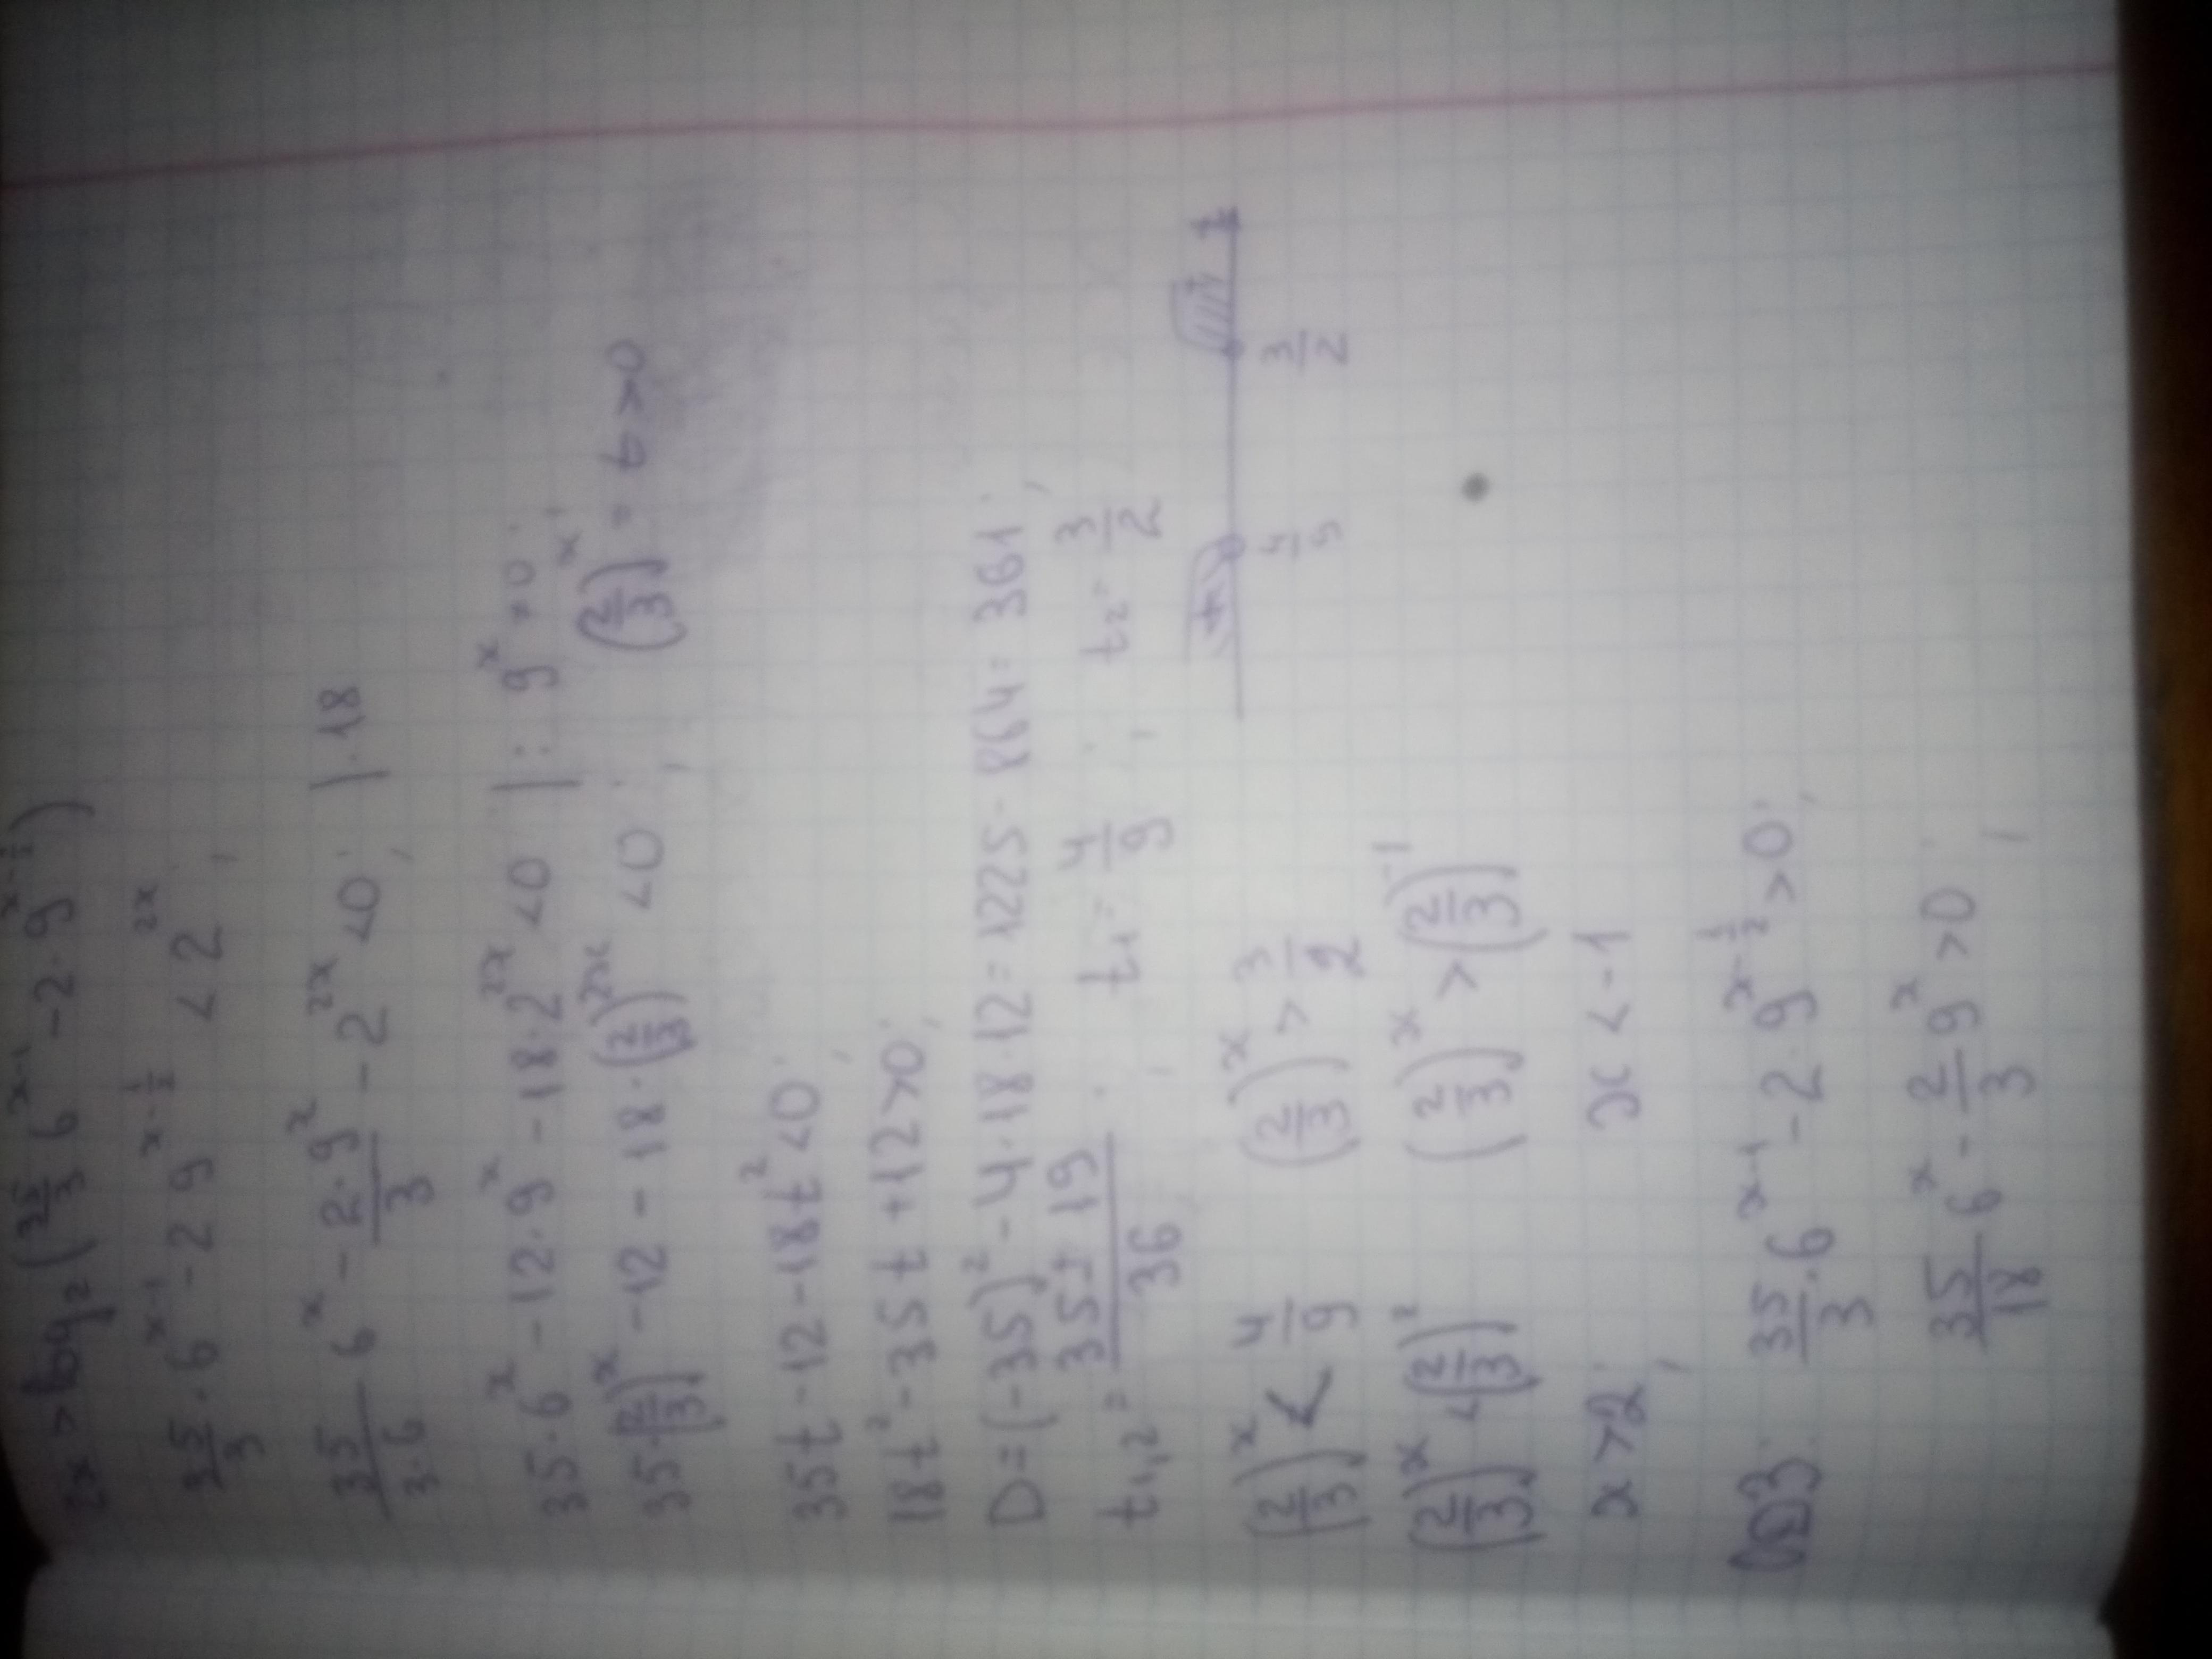 2x > log₂ (35/3 6^(x-1) - 2·9^(x-1/2))
35/3 · 6^(x-1) - 2 9^(x-1/2) < 2^(2x) ;
35/(3·6) 6^x - (2·9^x)/3 - 2^(2x) <0 ; | · 18
35·6^x - 12·9^x - 18·2^(2x) <0 | : 9^x ≠0 ;
35·(2/3)^x - 12 - 18·(2/3)^(2x) <0 ; (2/3)^x = t >0
35t - 12 - 18t² <0 ;
18t² - 35t + 12 >0 ;
D = (-35)² - 4·18·12 = 1225 - 864 = 361 ;
t₁,₂ = (35 ± 19)/36 ; t₁ = 4/9 ; t₂ = 3/2
4/9 3/2 t
(2/3)^x < 4/9 (2/3)^x > 3/2
(2/3)^x < (2/3)^2 (2/3)^x > (2/3)^(-1)
x >2 ; x < -1
ОДЗ: 35/3 · 6^(x-1) - 2·9^(x-1/2) >0 ;
35/18 6^x - 2/3 9^x >0 ;